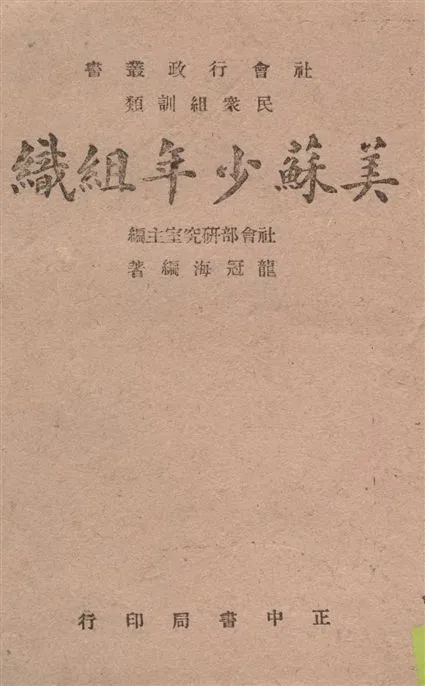 社會行政叢書
民衆組訓類
美蘇少年組織
社會部研究室主編
龍冠海編著
正中書局印行